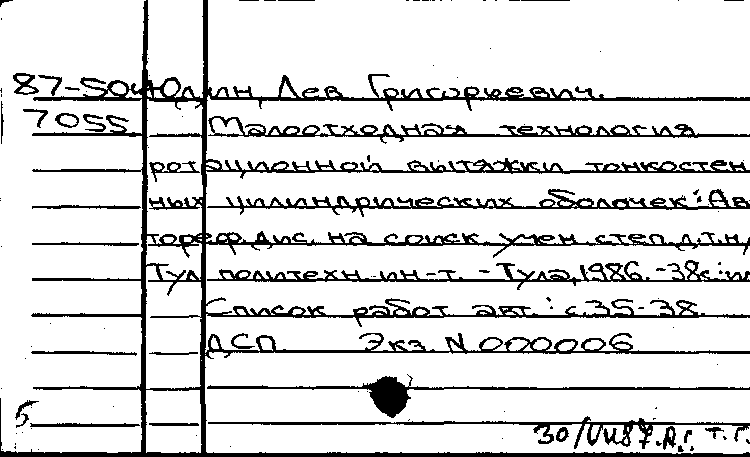 87-504 Юдин, Лев Григорьевич.
7055 Малоотходная технология
ротационной вытяжки тонкостен
ных цилиндрических оболочек: Ав
тореф. дис. на соиск. учен. степ. д.т.н.
Тул. политехн. ин-т. - Тула, 1986. - 38с.: ил
Список работ авт.: с.35-38.
ДСП Экз. N 000006
5
30/VII87. А.Г. Т.Г.